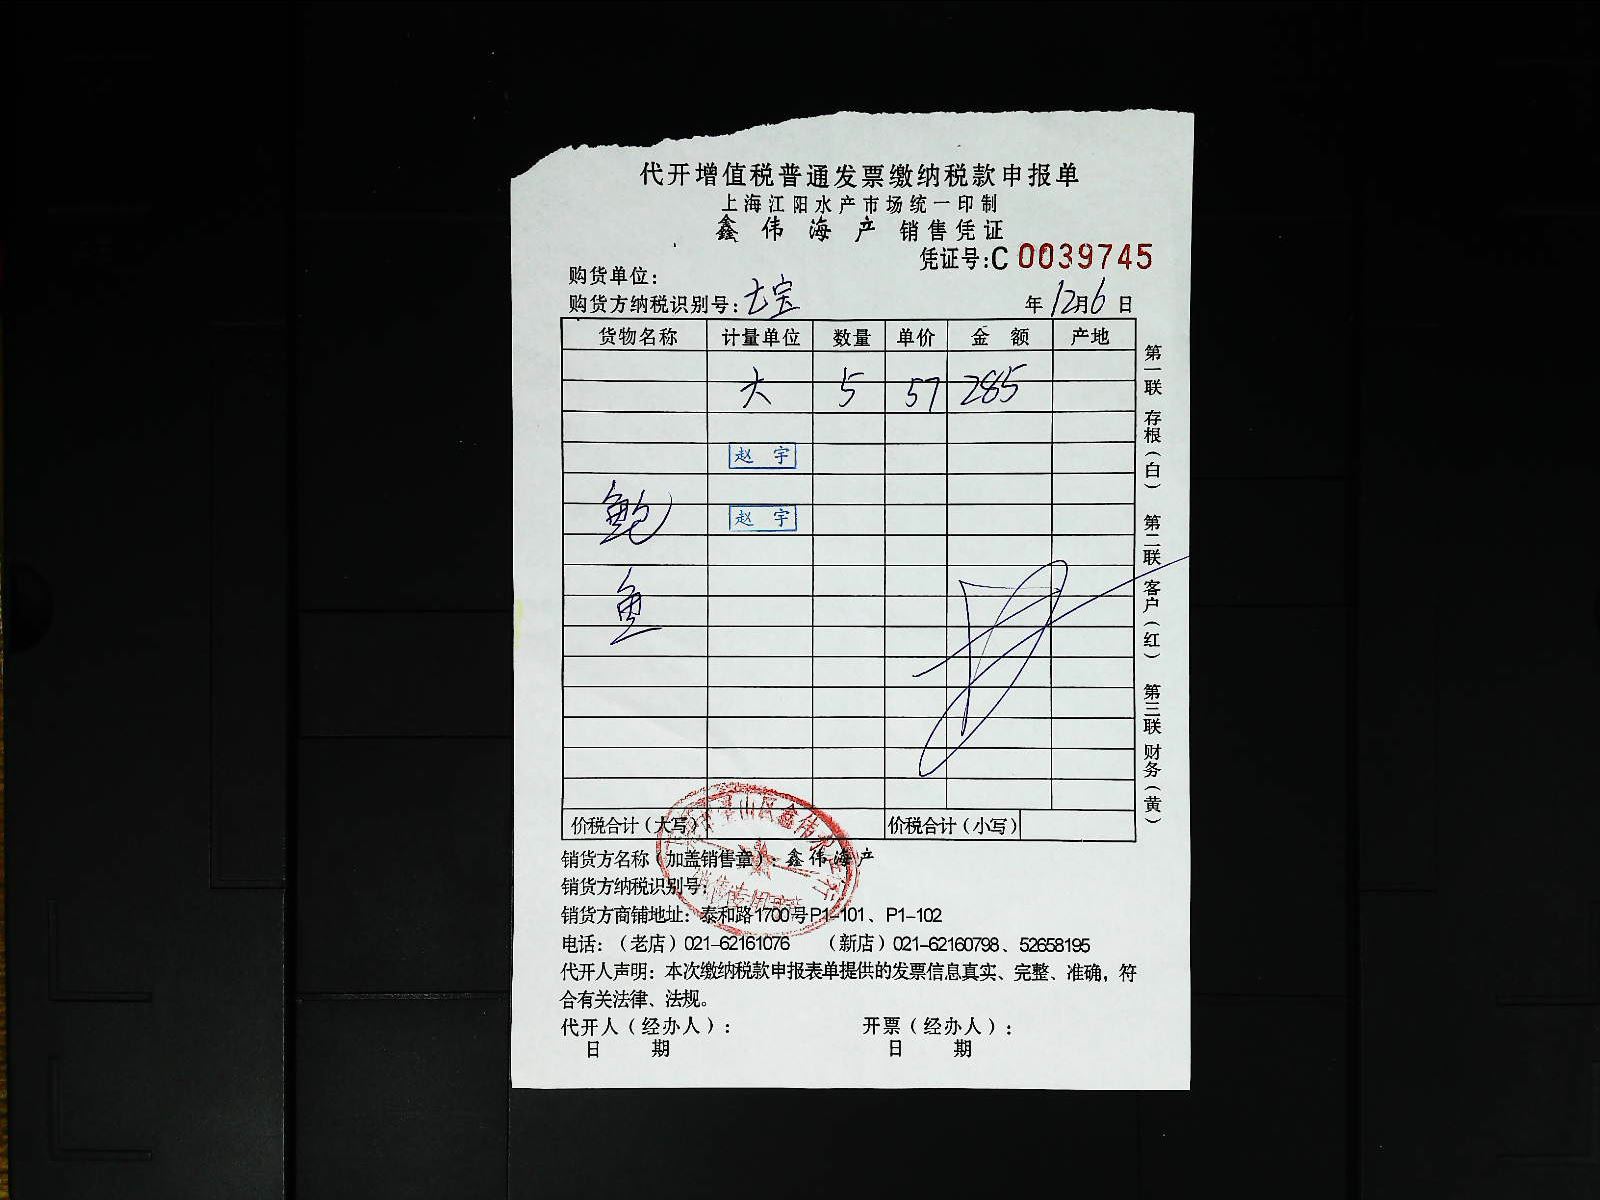 代开增值税普通发票缴纳税款申报单
上海江阳水产市场统一印制
鑫伟海产 销售凭证
凭证号:C 0039745
购货单位:
购货方纳税识别号: 七宝 年 12月6 日
货物名称 计量单位 数量 单价 金 额 产地
大 5 57 285
赵 宇
鲍 赵 宇
鱼
第一联 存根(白) 第二联 客户(红) 第三联 财务(黄)
价税合计(大写) 价税合计(小写)
销货方名称(加盖销售章): 鑫伟海产
销货方纳税识别号:
销货方商铺地址: 泰和路1700号P1-101、P1-102
电话:(老店)021-62161076 (新店)021-62160798、52658195
代开人声明: 本次缴纳税款申报表单提供的发票信息真实、完整、准确, 符
合有关法律、法规。
代开人(经办人): 开票(经办人):
日 期 日 期
山区鑫伟